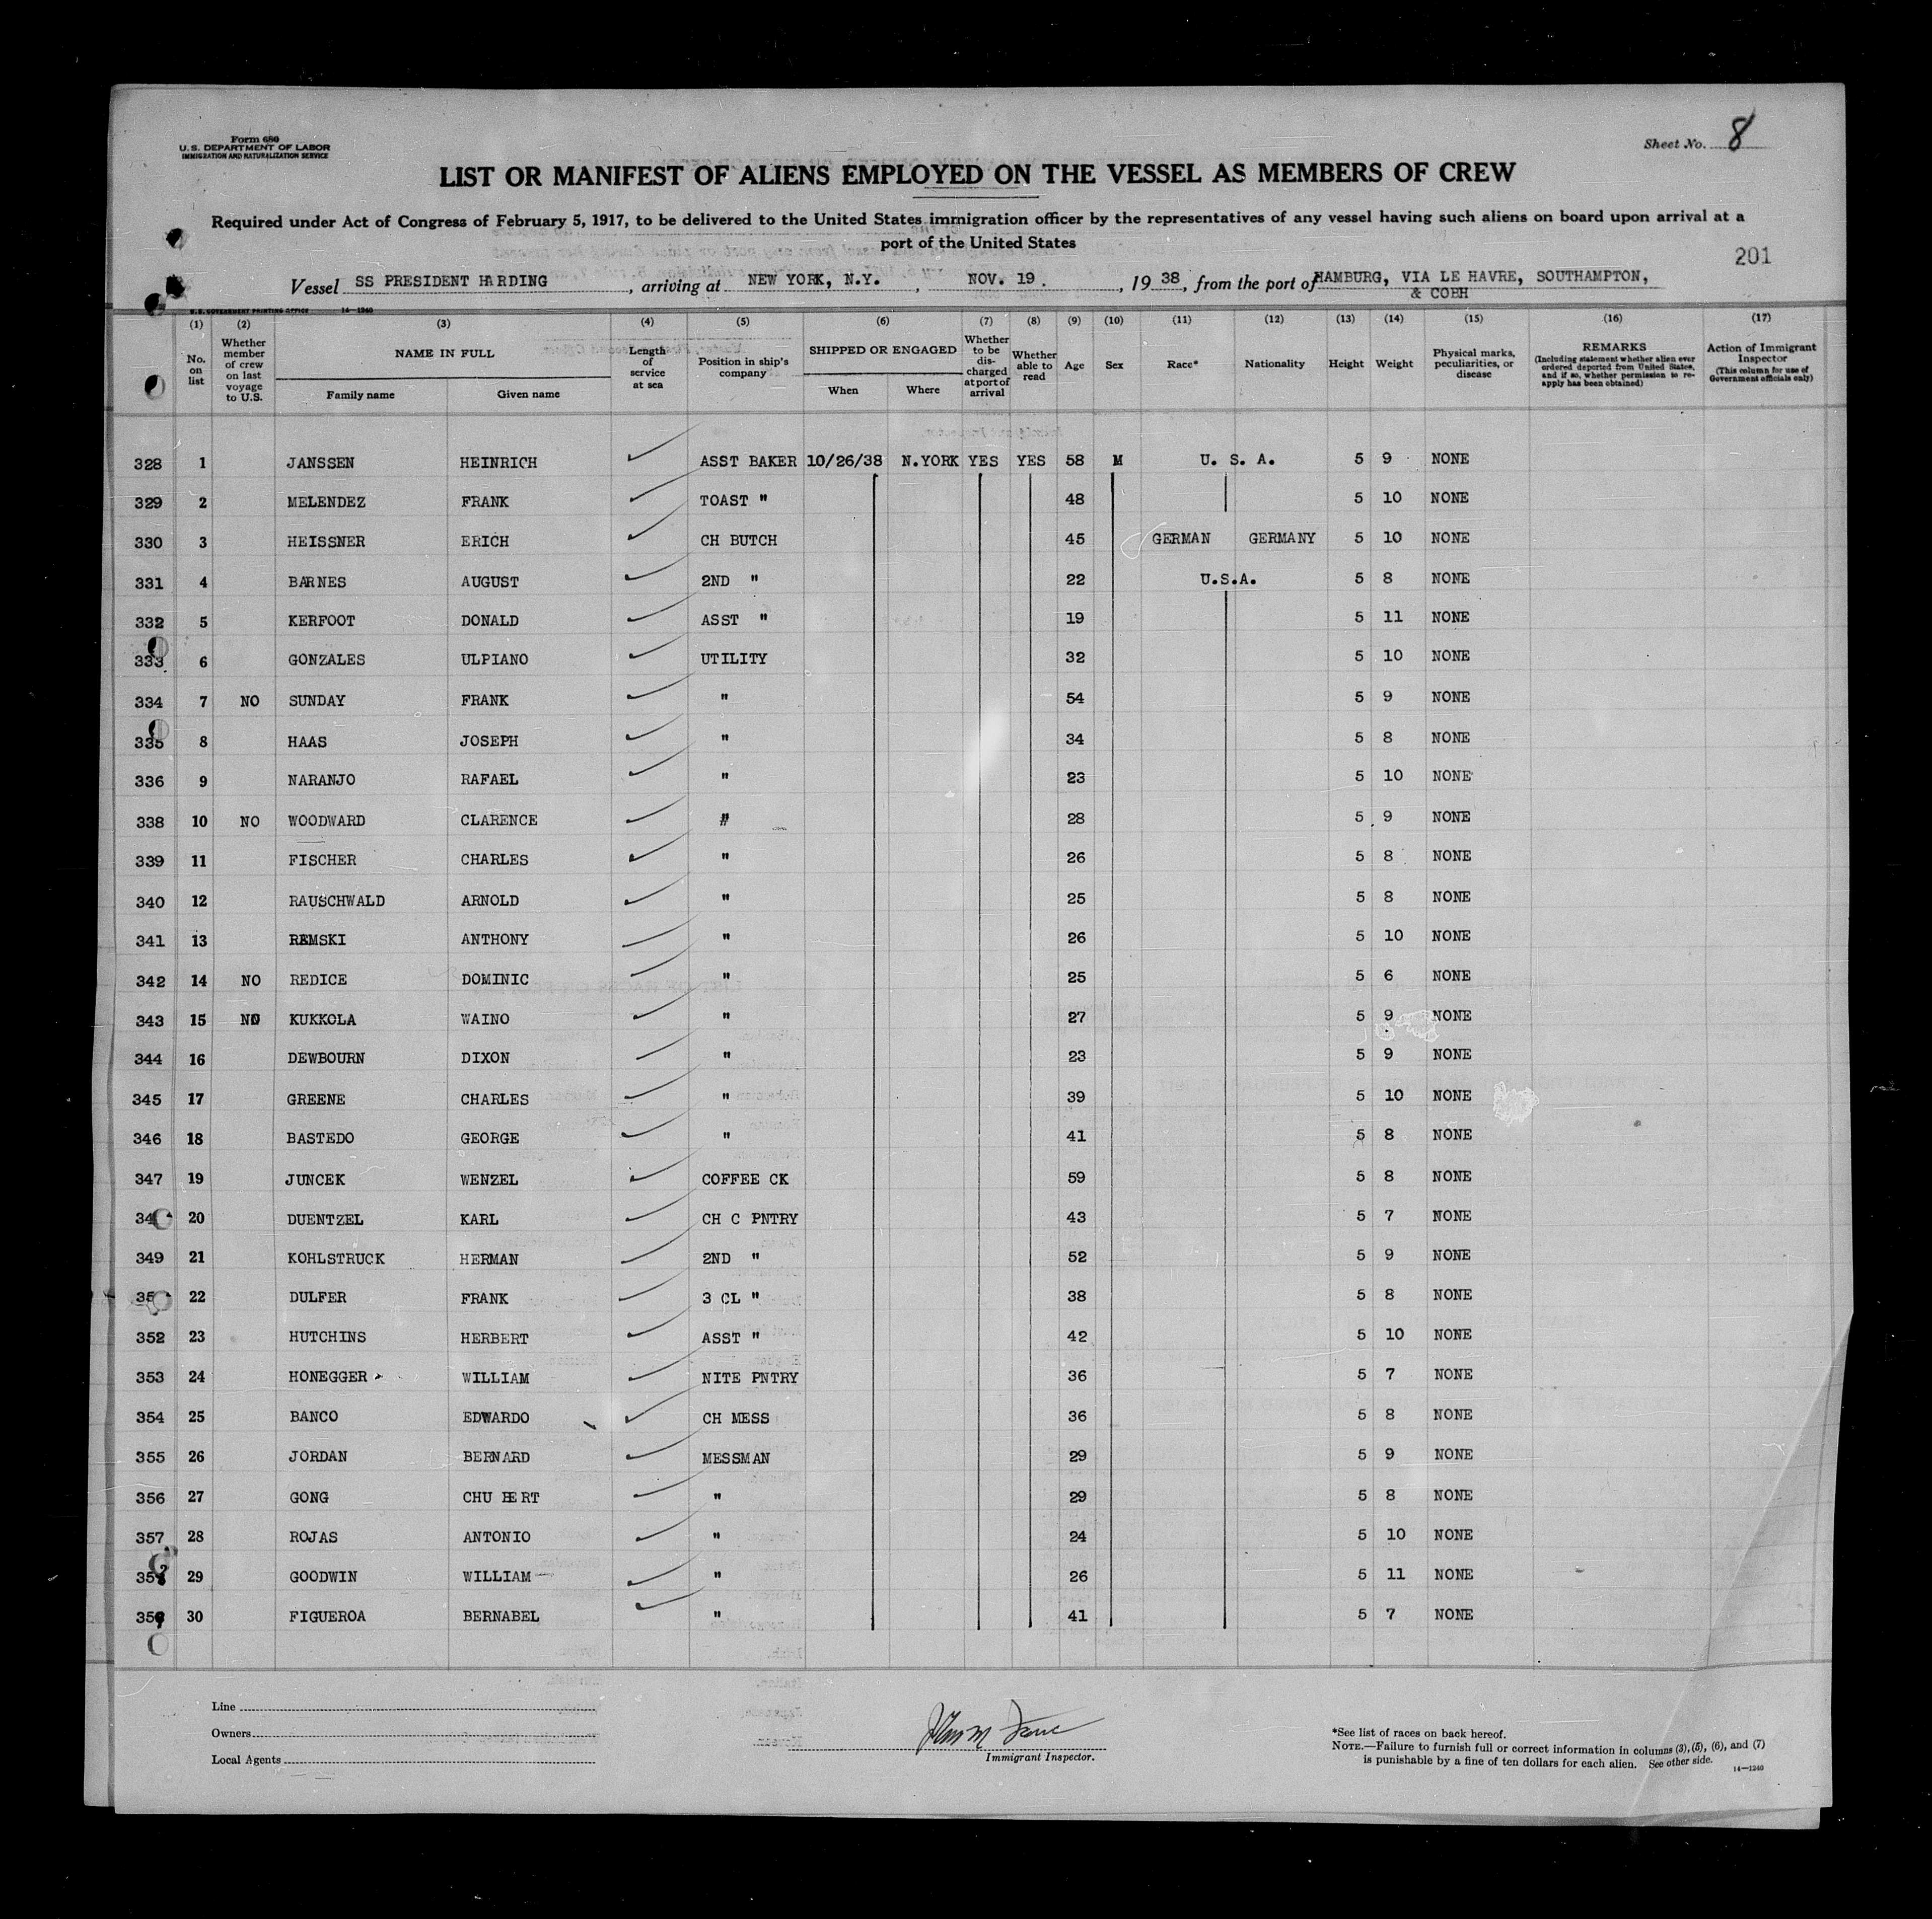 Form 680
U.S. DEPARTMENT OF LABOR
IMMIGRATION AND NATURALIZATION SERVICE
Sheet No. 8
LIST OR MANIFEST OF ALIENS EMPLOYED ON THE VESSEL AS MEMBERS OF CREW
Required under Act of Congress of February 5, 1917, to be delivered to the United States immigration officer by the representatives of any vessel having such aliens on board upon arrival at a
port of the United States
201
Vessel SS PRESIDENT HARDING, arriving at NEW YORK, N.Y., NOV. 19., 1938, from the port of HAMBURG, VIA LE HAVRE, SOUTHAMPTON,
& COBH
U.S. GOVERNMENT PRINTING OFFICE 14—1240
(1) (2) (3) (4) (5) (6) (7) (8) (9) (10) (11) (12) (13) (14) (15) (16) (17)
No. on list
Whether member of crew on last voyage to U.S.
NAME IN FULL
Family name Given name
Length of service at sea
Position in ship's company
SHIPPED OR ENGAGED
When Where
Whether to be discharged at port of arrival
Whether able to read
Age Sex Race* Nationality Height Weight
Physical marks, peculiarities, or disease
REMARKS
(Including statement whether alien ever ordered deported from United States, and if so, whether permission to reapply has been obtained)
Action of Immigrant Inspector
(This column for use of Government officials only)
328 1 JANSSEN HEINRICH ASST BAKER 10/26/38 N.YORK YES YES 58 M U. S. A. 5 9 NONE
329 2 MELENDEZ FRANK TOAST " 48 5 10 NONE
330 3 HEISSNER ERICH CH BUTCH 45 GERMAN GERMANY 5 10 NONE
331 4 BARNES AUGUST 2ND " 22 U.S.A. 5 8 NONE
332 5 KERFOOT DONALD ASST " 19 5 11 NONE
333 6 GONZALES ULPIANO UTILITY 32 5 10 NONE
334 7 NO SUNDAY FRANK " 54 5 9 NONE
335 8 HAAS JOSEPH " 34 5 8 NONE
336 9 NARANJO RAFAEL " 23 5 10 NONE
338 10 NO WOODWARD CLARENCE " 28 5 9 NONE
339 11 FISCHER CHARLES " 26 5 8 NONE
340 12 RAUSCHWALD ARNOLD " 25 5 8 NONE
341 13 REMSKI ANTHONY " 26 5 10 NONE
342 14 NO REDICE DOMINIC " 25 5 6 NONE
343 15 NO KUKKOLA WAINO " 27 5 9 NONE
344 16 DEWBOURN DIXON " 23 5 9 NONE
345 17 GREENE CHARLES " 39 5 10 NONE
346 18 BASTEDO GEORGE " 41 5 8 NONE
347 19 JUNCEK WENZEL COFFEE CK 59 5 8 NONE
20 DUENTZEL KARL CH C PNTRY 43 5 7 NONE
349 21 KOHLSTRUCK HERMAN 2ND " 52 5 9 NONE
22 DULFER FRANK 3 CL " 38 5 8 NONE
352 23 HUTCHINS HERBERT ASST " 42 5 10 NONE
353 24 HONEGGER WILLIAM NITE PNTRY 36 5 7 NONE
354 25 BANCO EDWARDO CH MESS 36 5 8 NONE
355 26 JORDAN BERNARD MESSMAN 29 5 9 NONE
356 27 GONG CHU BERT " 29 5 8 NONE
357 28 ROJAS ANTONIO " 24 5 10 NONE
358 29 GOODWIN WILLIAM " 26 5 11 NONE
359 30 FIGUEROA BERNABEL " 41 5 7 NONE
Line
Owners
Local Agents
Immigrant Inspector.
*See list of races on back hereof.
NOTE.—Failure to furnish full or correct information in columns (3), (5), (6), and (7)
is punishable by a fine of ten dollars for each alien. See other side.
14—1240